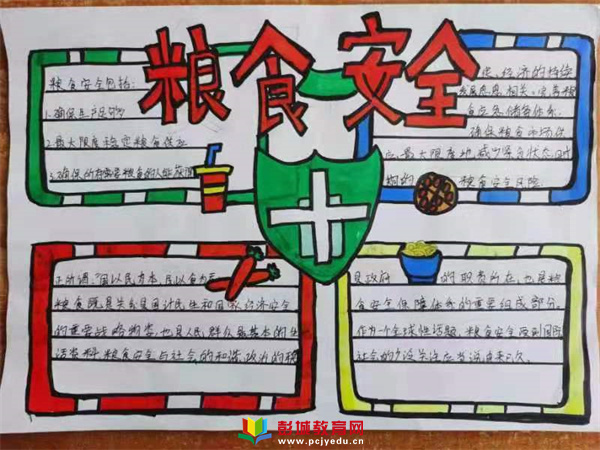 粮食安全
粮食安全包括:
1.确保生产足够
2.最大限度稳定粮食供应
3.确保所有需要粮食的人能获得
经济的持续
发展息息相关,完善粮
食应急储备体系,
确保粮食市场供
应,最大限度地减少紧急状态时
期的 粮食安全风险
正所谓"国以民为本,民以食为
粮食既是关系是国计民生和国家经济安全
的重要战略物资,也是人民群众最基本的生
活资料粮食安全与社会的和谐,政治的稳
是政府 的职责所在,也是粮
食安全保障体系的重要组成部分。
作为一个全球性话题,粮食安全受到国际
社会的 关注应当说由来已久。
彭城教育网
www.pcjyedu.cn